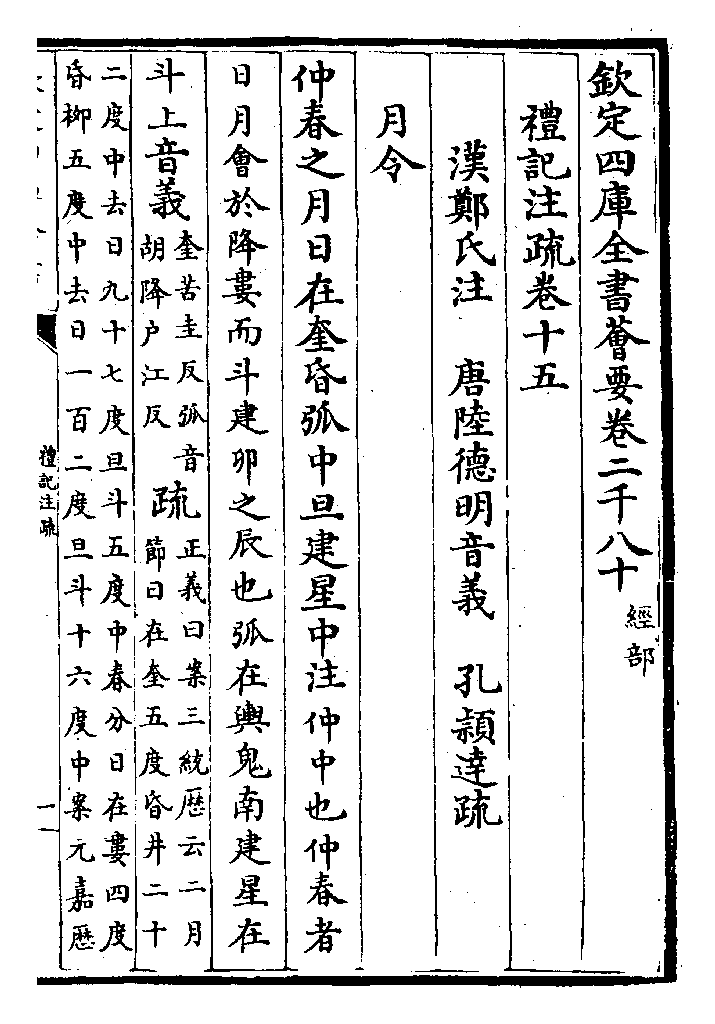 欽定四庫全書薈要卷二千八十 經部
禮記注疏卷十五
漢鄭氏注 唐陸德明音義 孔穎達疏
月令
仲春之月日在奎昏弧中旦建星中注仲中也仲春者
日月會於降婁而斗建卯之辰也弧在輿鬼南建星在
斗上音義奎苦圭反弧音
胡降户江反
疏正義曰案三統歷云二月
節日在奎五度昏井二十
二度中去日九十七度旦斗五度中春分日在婁四度
昏栁五度中去日一百二度旦斗十六度中案元嘉歷
禮記注疏
一